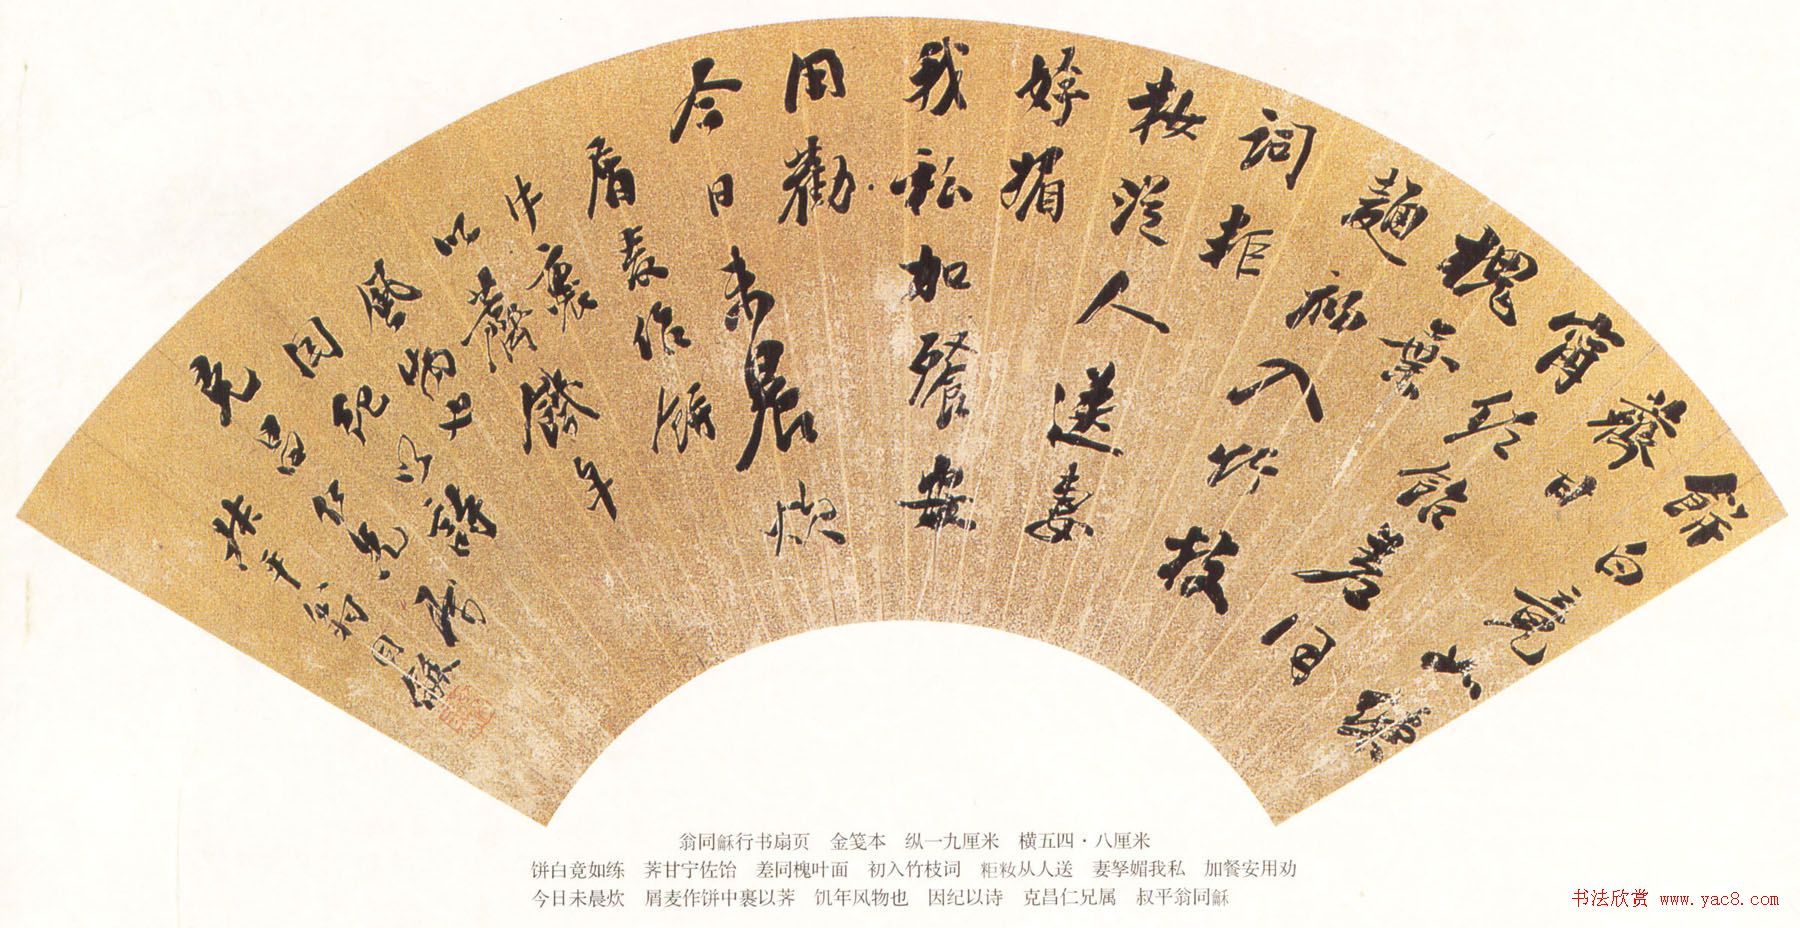 餅白竟如練
薺甘
甯佐飴差同
槐葉
麵初入竹枝
詞粔
籹從人送妻
孥媚
我私加餐安
用勸
今日未晨炊
屑麥作餅
中裹
以薺饑年
風物也
因紀以詩
克昌仁兄屬
叔平翁同龢
翁同龢行书扇页　金笺本　纵一九厘米　横五四·八厘米
饼白竟如练　荠甘宁佐饴　差同槐叶面　初入竹枝词　粔籹从人送　妻孥媚我私　加餐安用劝
今日未晨炊　屑麦作饼中裹以荠　饥年风物也　因纪以诗　克昌仁兄属　叔平翁同龢
书法欣赏 www.yac8.com